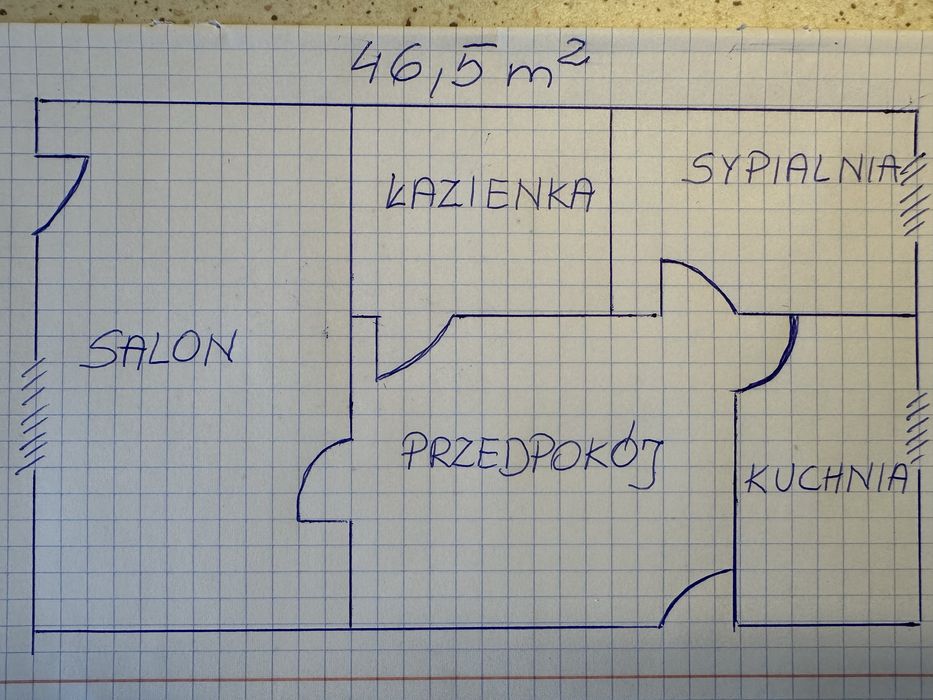 46,5 m²
ŁAZIENKA
SYPIALNIA
SALON
PRZEDPOKÓJ
KUCHNIA